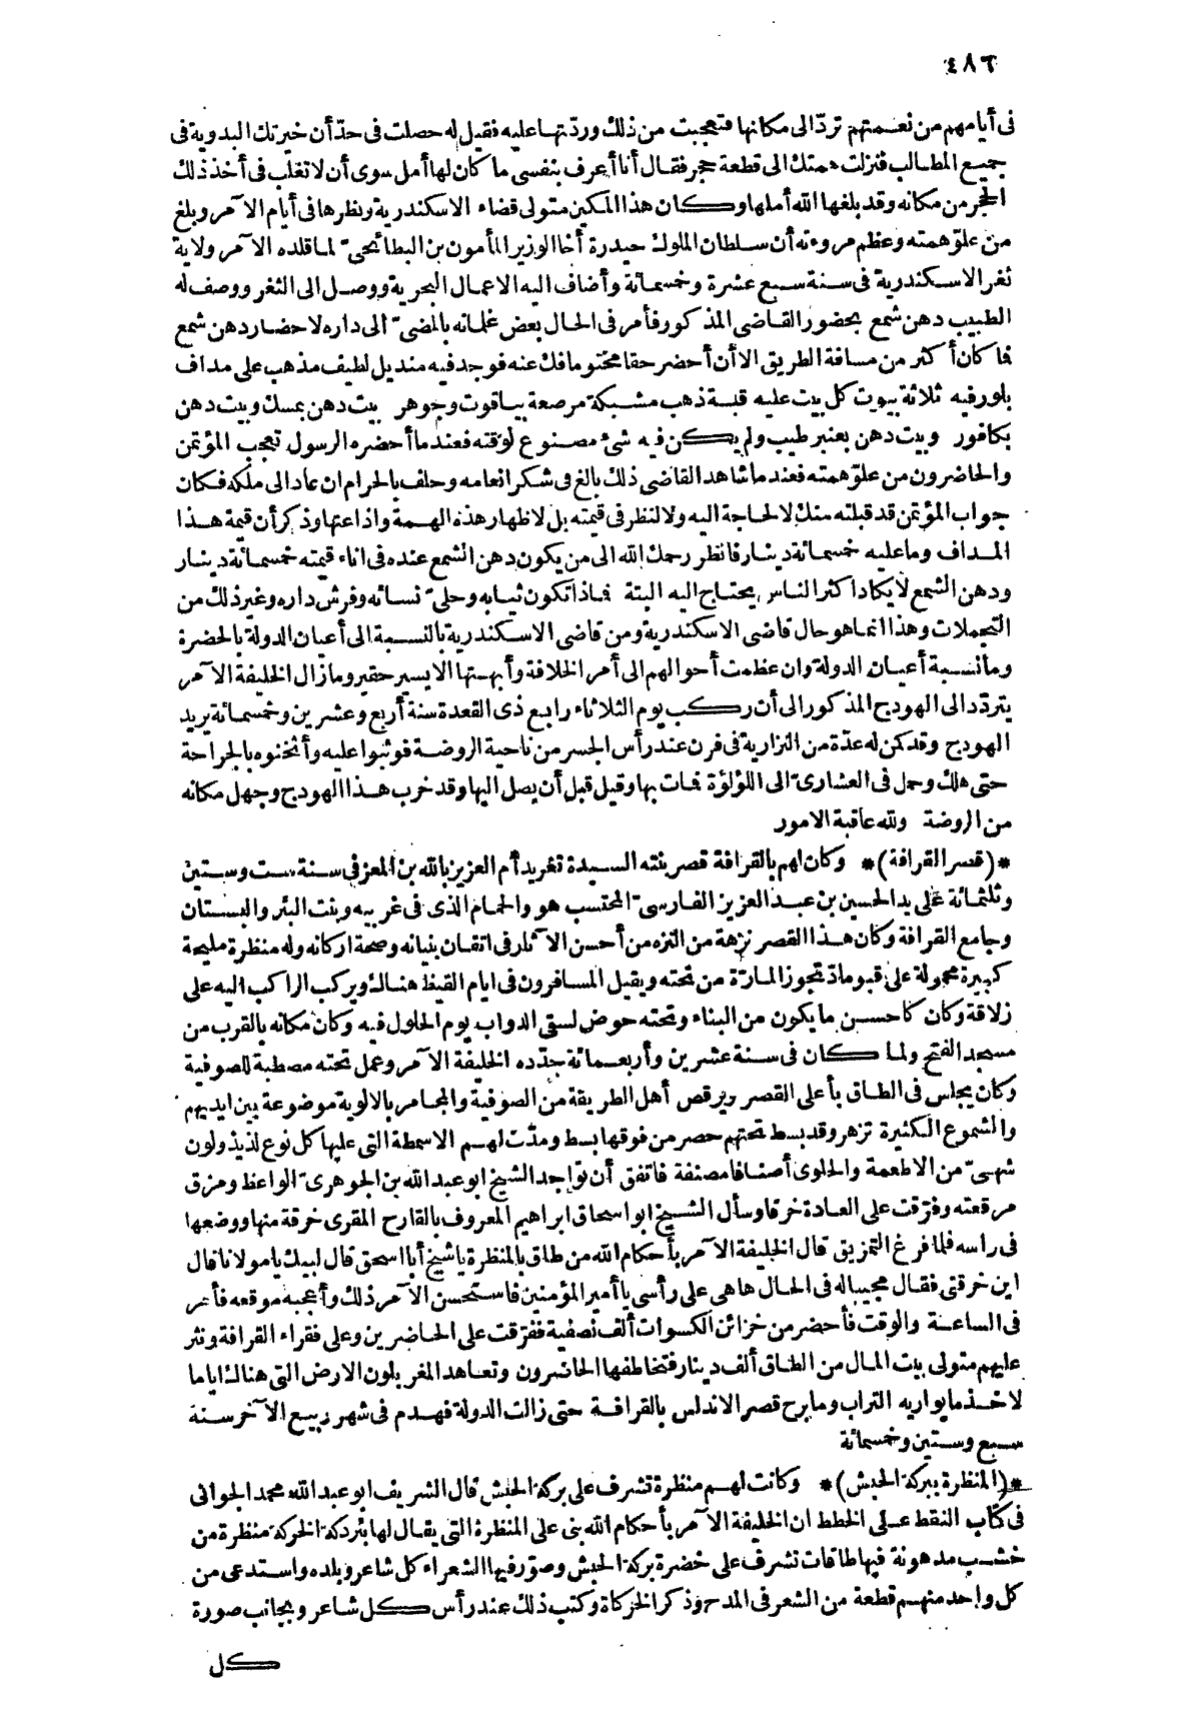 ٤٨٦
فى أيامهم من نعمتهم تردّ الى مكانها فتعجبت من ذلك وردّتها عليه فقيل له حصلت فى حدّ أن خيرتك البدوية فى
جميع المطالب فنزلت همتك الى قطعة حجر فقال أنا أعرف بنفسى ما كان لها أمل سوى أن لا تغلب فى أخذ ذلك
الحجر من مكانه وقد بلغها الله أملها وكان هذا المكين متولى قضاء الاسكندرية ونظرها فى أيام الآمر وبلغ
من علوّ همته وعظم مروءته أن سلطان الملوك حيدرة أخا الوزير المأمون بن البطائحىّ لما قلده الآمر ولاية
ثغر الاسكندرية فى سنة سبع عشرة وخمسمائة وأضاف اليه الاعمال البحرية ووصل الى الثغر ووصف له
الطبيب دهن شمع بحضور القاضى المذكور فأمر فى الحال بعض غلمانه بالمضىّ الى داره لاحضار دهن شمع
فما كان أكثر من مسافة الطريق الا أن أحضر حقا مختوما فك عنه فوجد فيه منديل لطيف مذهب على مداف
بلور فيه ثلاثة بيوت كل بيت عليه قبة ذهب مشبكة مرصعة بياقوت وجوهر بيت دهن بمسك وبيت دهن
بكافور وبيت دهن بعنبر طيب ولم يكن فيه شئ مصنوع لوقته فعندما أحضره الرسول تعجب المؤتمن
والحاضرون من علوّ همته فعندما شاهد القاضى ذلك بالغ فى شكر انعامه وحلف بالحرام ان عاد الى ملكه فكان
جواب المؤتمن قد قبلته منك لا لحاجة اليه ولا لنظر فى قيمته بل لاظهار هذه الهمة واذاعتها وذكر أن قيمة هذا
المداف وما عليه خمسمائة دينار فانظر رحمك الله الى من يكون دهن الشمع عنده فى اناء قيمته خمسمائة دينار
ودهن الشمع لا يكاد أكثر الناس يحتاج اليه البتة فماذا تكون ثيابه وحلىّ نسائه وفرش داره وغير ذلك من
التجملات وهذا انما هو حال قاضى الاسكندرية ومن قاضى الاسكندرية بالنسبة الى أعيان الدولة بالحضرة
وما نسبة أعيان الدولة وان عظمت أحوالهم الى أمر الخلافة وأبهتها الا يسير حقير وما زال الخليفة الآمر
يتردّد الى الهودج المذكور الى أن ركب يوم الثلاثاء رابع ذى القعدة سنة أربع وعشرين وخمسمائة يريد
الهودج وقد كمن له عدّة من النزارية فى فرن عند رأس الجسر من ناحية الروضة فوثبوا عليه وأثخنوه بالجراحة
حتى هلك وحمل فى العشارىّ الى اللؤلؤة فمات بها وقيل قبل أن يصل اليها وقد خرب هذا الهودج وجهل مكانه
من الروضة ولله عاقبة الامور
*(قصر القرافة)* وكان لهم بالقرافة قصر بنته السيدة تغريد أم العزيز بالله بن المعز فى سنة ست وستين
وثلثمائة على يد الحسين بن عبد العزيز الفارسىّ المحتسب هو والحمام الذى فى غربيه وبنت البئر والبستان
وجامع القرافة وكان هذا القصر نزهة من النزه من أحسن الآثار فى اتقان بنيانه وصحة اركانه وله منظرة مليحة
كبيرة محمولة على قبو ماد تجوز المارّة من تحته ويقيل المسافرون فى ايام القيظ هناك ويركب الراكب اليه على
زلاقة وكان كأحسن ما يكون من البناء وتحته حوض لسقى الدواب يوم الحلول فيه وكان مكانه بالقرب من
مسجد الفتح ولما كان فى سنة عشرين وأربعمائة جدّده الخليفة الآمر وعمل تحته مصطبة للصوفية
وكان يجلس فى الطاق بأعلى القصر ويرقص أهل الطريقة من الصوفية والمجامر بالالوية موضوعة بين ايديهم
والشموع الكثيرة تزهر وقد بسط تحتهم حصر من فوقها بسط ومدّت لهم الاسمطة التى عليها كل نوع لذيذ ولون
شهىّ من الاطعمة والحلوى أصنافا مصنفة فاتفق أن تواجد الشيخ ابو عبد الله بن الجوهرىّ الواعظ ومزق
مرقعته وفرّقت على العادة خرقا وسأل الشيخ ابو اسحاق ابراهيم المعروف بالقارح المقرى خرقة منها ووضعها
فى راسه فلما فرغ التمزيق قال الخليفة الآمر بأحكام الله من طاق بالمنظرة يا شيخ أبا اسحق قال لبيك يا مولانا قال
اين خرقتى فقال مجيبا له فى الحال ها هى على رأسى يا أمير المؤمنين فاستحسن الآمر ذلك وأعجبه موقعه فأمر
فى الساعة والوقت فأحضر من خزائن الكسوات ألف نصفية ففرّقت على الحاضرين وعلى فقراء القرافة ونثر
عليهم متولى بيت المال من الطاق ألف دينار فتخاطفها الحاضرون وتعاهد المغربلون الارض التى هناك اياما
لاخذ ما يواريه التراب وما برح قصر الاندلس بالقرافة حتى زالت الدولة فهدم فى شهر ربيع الآخر سنة
سبع وستين وخمسمائة
*(المنظرة ببركة الحبش)* وكانت لهم منظرة تشرف على بركة الحبش قال الشريف ابو عبد الله محمد الجوانى
فى كتاب النقط على الخطط ان الخليفة الآمر بأحكام الله بنى على المنظرة التى يقال لها بئر دكة الخركة منظرة من
خشب مدهونة فيها طاقات تشرف على خضرة بركة الحبش وصوّر فيها الشعراء كل شاعر وبلده واستدعى من
كل واحد منهم قطعة من الشعر فى المدح وذكر الخركاة وكتب ذلك عند رأس كل شاعر وبجانب صورة
كل